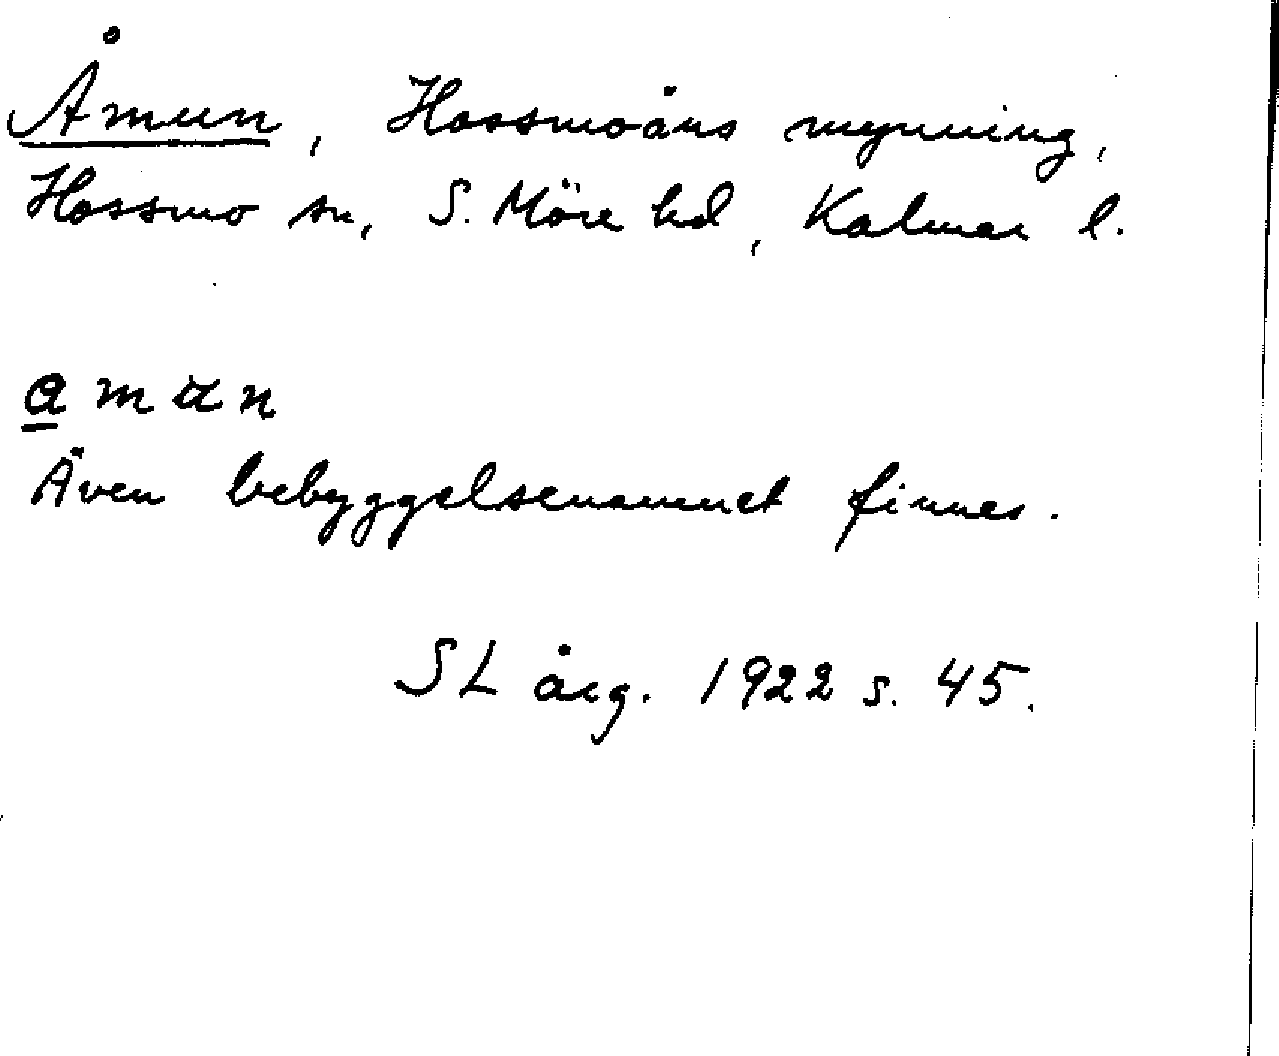 Åmun, Hossmoåns mynning,
Hossmo sn, S. Möre hd, Kalmar l.
a m u n
Även bebyggelsenamnet finnes.
SL årg. 1922 s. 45.